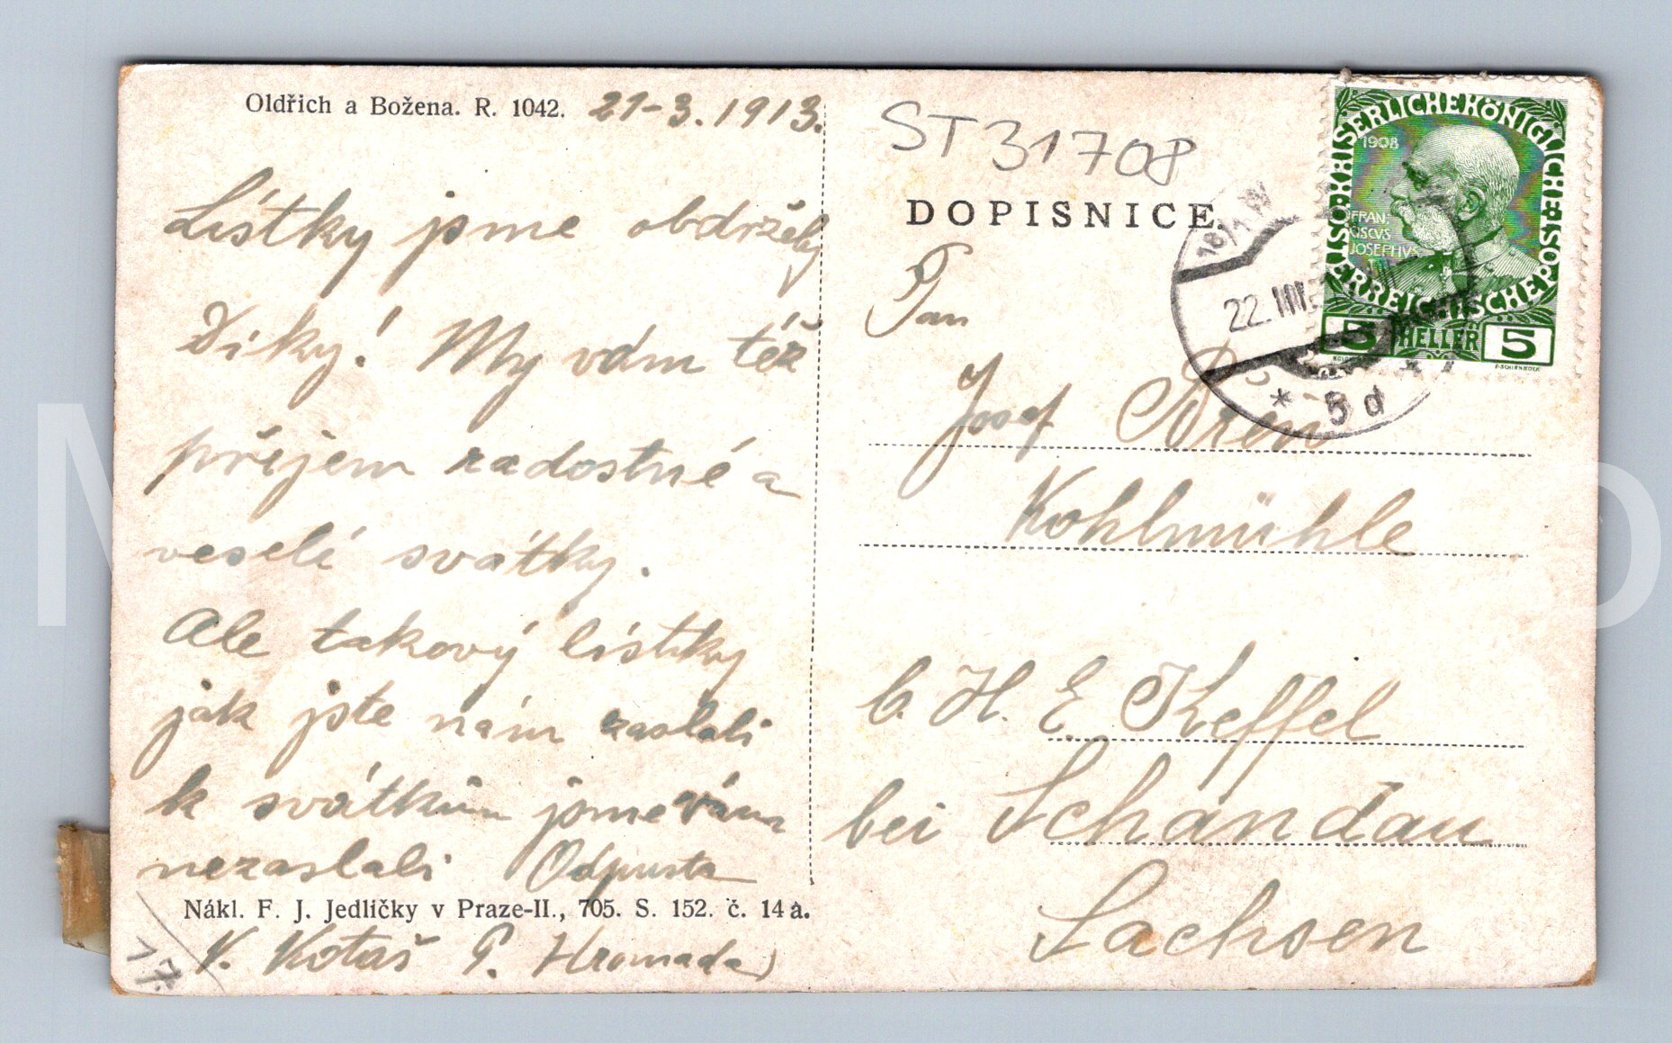 Oldřich a Božena. R. 1042. 21-3.1913.
Lístky jsme obdrželi
Díky! My vám též
přejem radostné a
veselé svátky.
Ale takový lístky
jak jste nám zaslali
k svátkům jsme vám
nezaslali Odpusta
Nákl. F. J. Jedličky v Praze-II., 705. S. 152. č. 14a.
V. Kotaš P. Hromada
17.
ST 31708
DOPISNICE.
Pan
Josef
Kohlmühle
b. H. E. Keffel
bei Schandau
Sachsen
KAISERLICHE KÖNIGLICHE ÖSTERREICHISCHE POST
1908
FRAN
CISCVS
JOSEPHVS
I
5 HELLER 5
22. III
* 5d